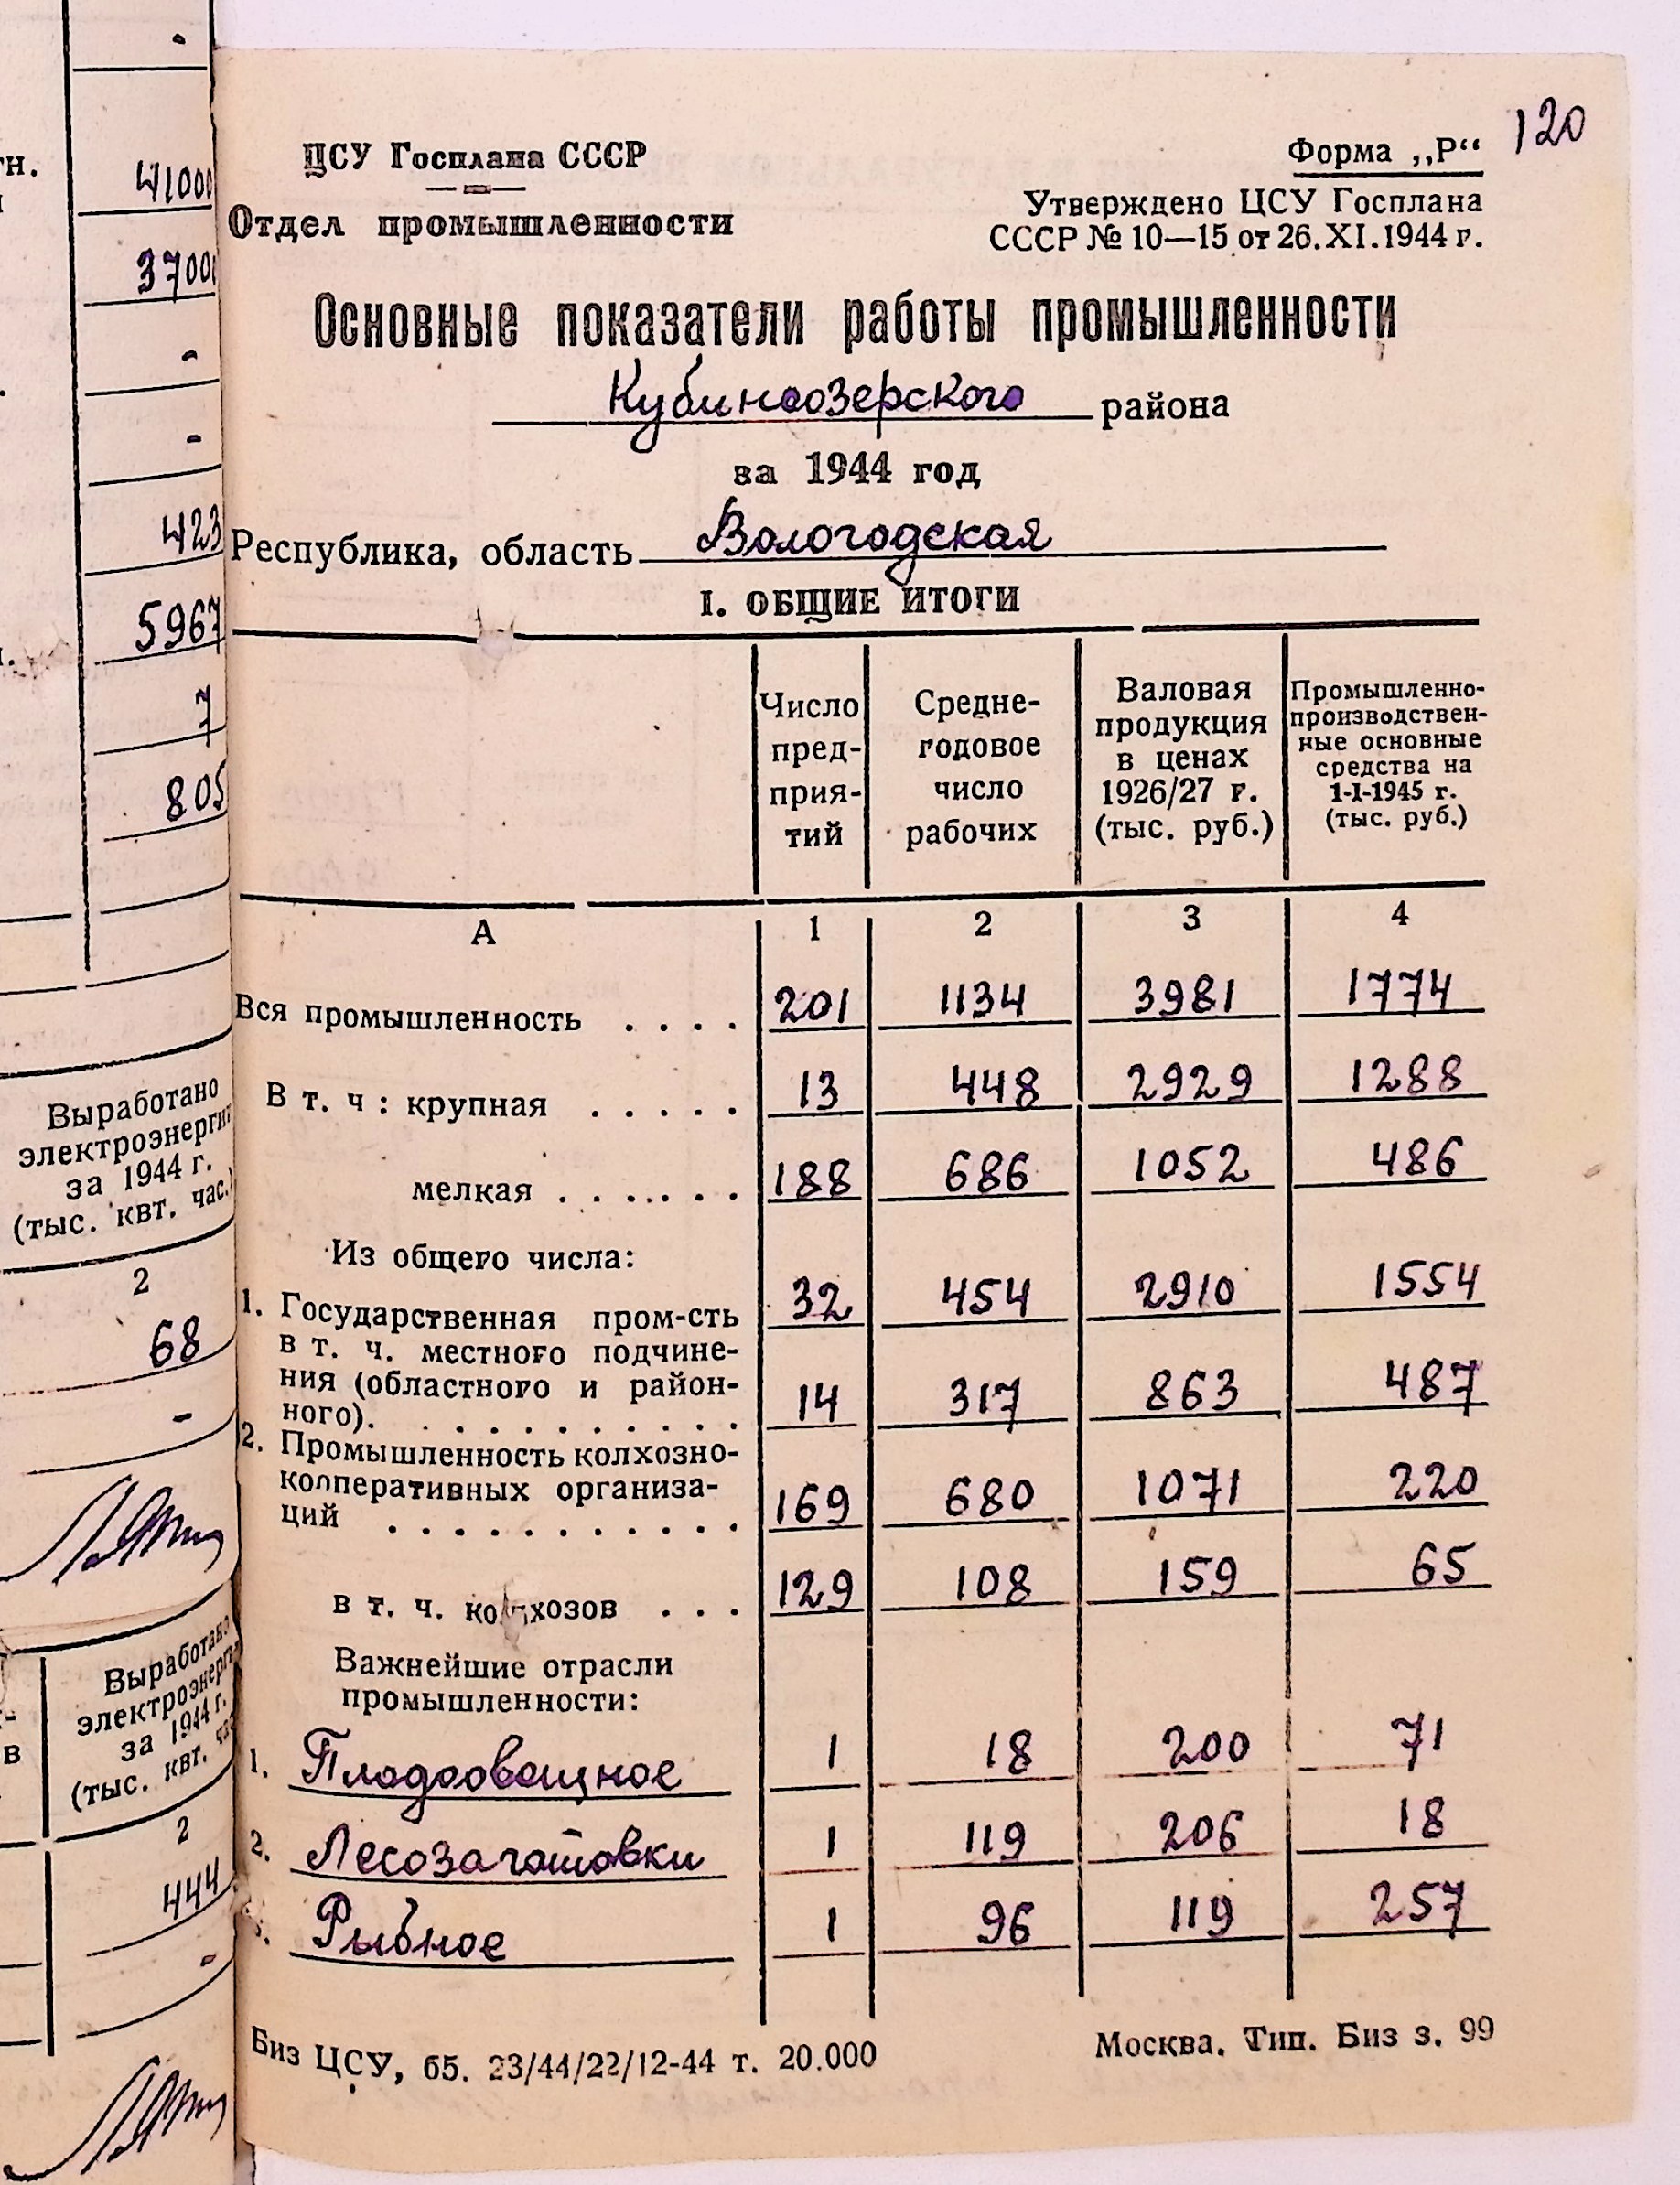 -
тн.
41000
37000
-
-
423
5967
7
805
Выработано
электроэнергии
за 1944 г.
(тыс. квт. час.)
2
68
-
Выработано
за 1944 г.
(тыс. квт.
в
2
444
-
120
ЦСУ Госплана СССР
Форма „Р“
Отдел промышленности
Утверждено ЦСУ Госплана
СССР № 10—15 от 26.XI.1944 г.
Основные показатели работы промышленности
Кубиноозерского района
за 1944 год
Республика, область Вологодская
I. ОБЩИЕ ИТОГИ
Число пред- прия- тий
Средне- годовое число рабочих
Валовая продукция в ценах 1926/27 г. (тыс. руб.)
Промышленно- производствен- ные основные средства на 1-I-1945 г. (тыс. руб.)
А 1 2 3 4
Вся промышленность . . . . 201 1134 3981 1774
В т. ч : крупная . . . . . 13 448 2929 1288
мелкая . . . . . . . 188 686 1052 486
Из общего числа:
1. Государственная пром-сть 32 454 2910 1554
в т. ч. местного подчине-
ния (областного и район-
ного). . . . . . . . . . . 14 317 863 487
2. Промышленность колхозно-
кооперативных организа-
ций . . . . . . . . . . . 169 680 1071 220
в т. ч. колхозов . . . 129 108 159 65
Важнейшие отрасли
промышленности:
1. Плодоовощное 1 18 200 71
2. Лесозаготовки 1 119 206 18
3. Рыбное 1 96 119 257
Биз ЦСУ, б5. 23/44/22/12-44 т. 20.000
Москва. Тип. Биз з. 99